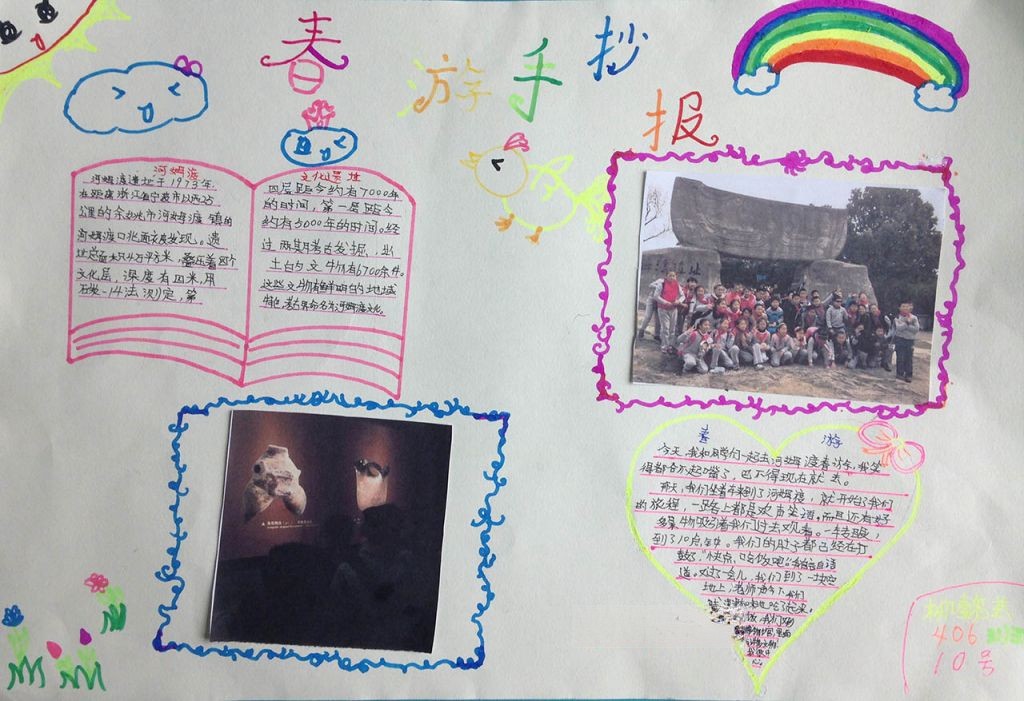 春游手抄报
河姆渡
河姆渡遗址于1973年,
在距离浙江省宁波市以西25
公里的余姚市河姆渡镇的
河姆渡口北面被发现。遗
址总面积4万平方米,叠压着四个
文化层,深度有四米,用
石炭-14法测定,第
文化遗址
四层距今约有7000年
的时间,第一层距今
约有5000年的时间。经
过两期考古发掘,出
土的文物有6700余件。
这些文物有鲜明的地域
特色,考古界命名为河姆渡文化。
遗址
春游
今天,我和同学们一起去河姆渡春游,我笑
得都合不起嘴了,巴不得现在就去。
我们坐着车来到了河姆渡,就开始了我们
的旅程,一路上都是欢声笑语。而且还有好
多景物吸引着我们过去观看。一转眼,
到了10点半。我们的肚子都已经在打
鼓了"快点,吃饭吧"我自言自语
道。又过了一会儿,我们到了一块空
地上,老师
406
10号